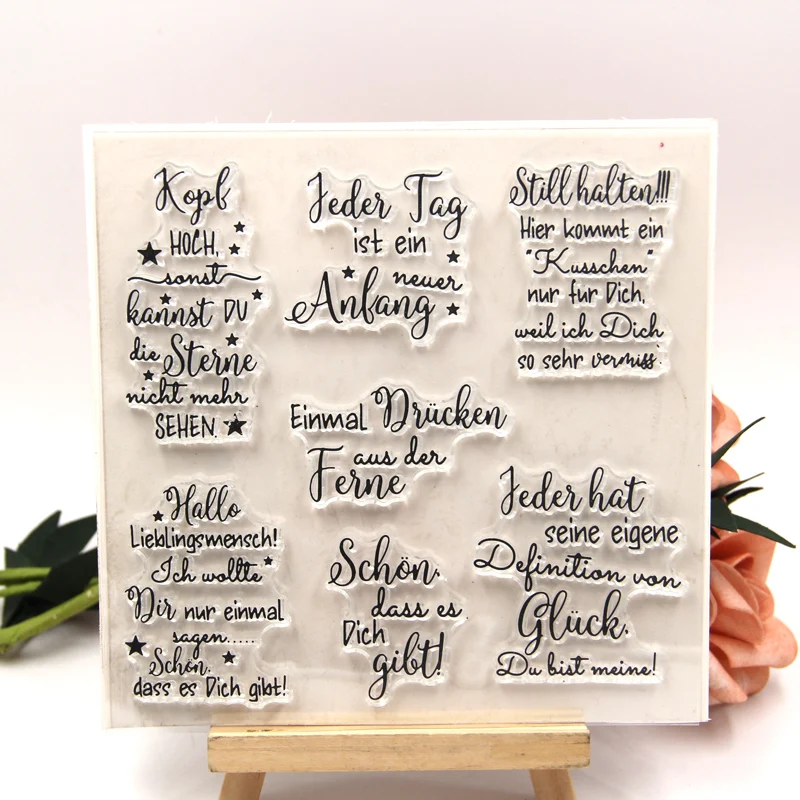 Kopf
HOCH,
sonst
kannst DU
die Sterne
nicht mehr
SEHEN.
Jeder Tag
ist ein
neuer
Anfang
Still halten!!!
Hier kommt ein
"Kusschen"
nur fur Dich,
weil ich Dich
so sehr vermiss.
Einmal Drücken
aus der
Ferne
Hallo
Lieblingsmensch!
Ich wollte
Dir nur einmal
sagen.....
Schön,
dass es Dich gibt!
Schön,
dass es
Dich
gibt!
Jeder hat
seine eigene
Definition von
Glück.
Du bist meine!